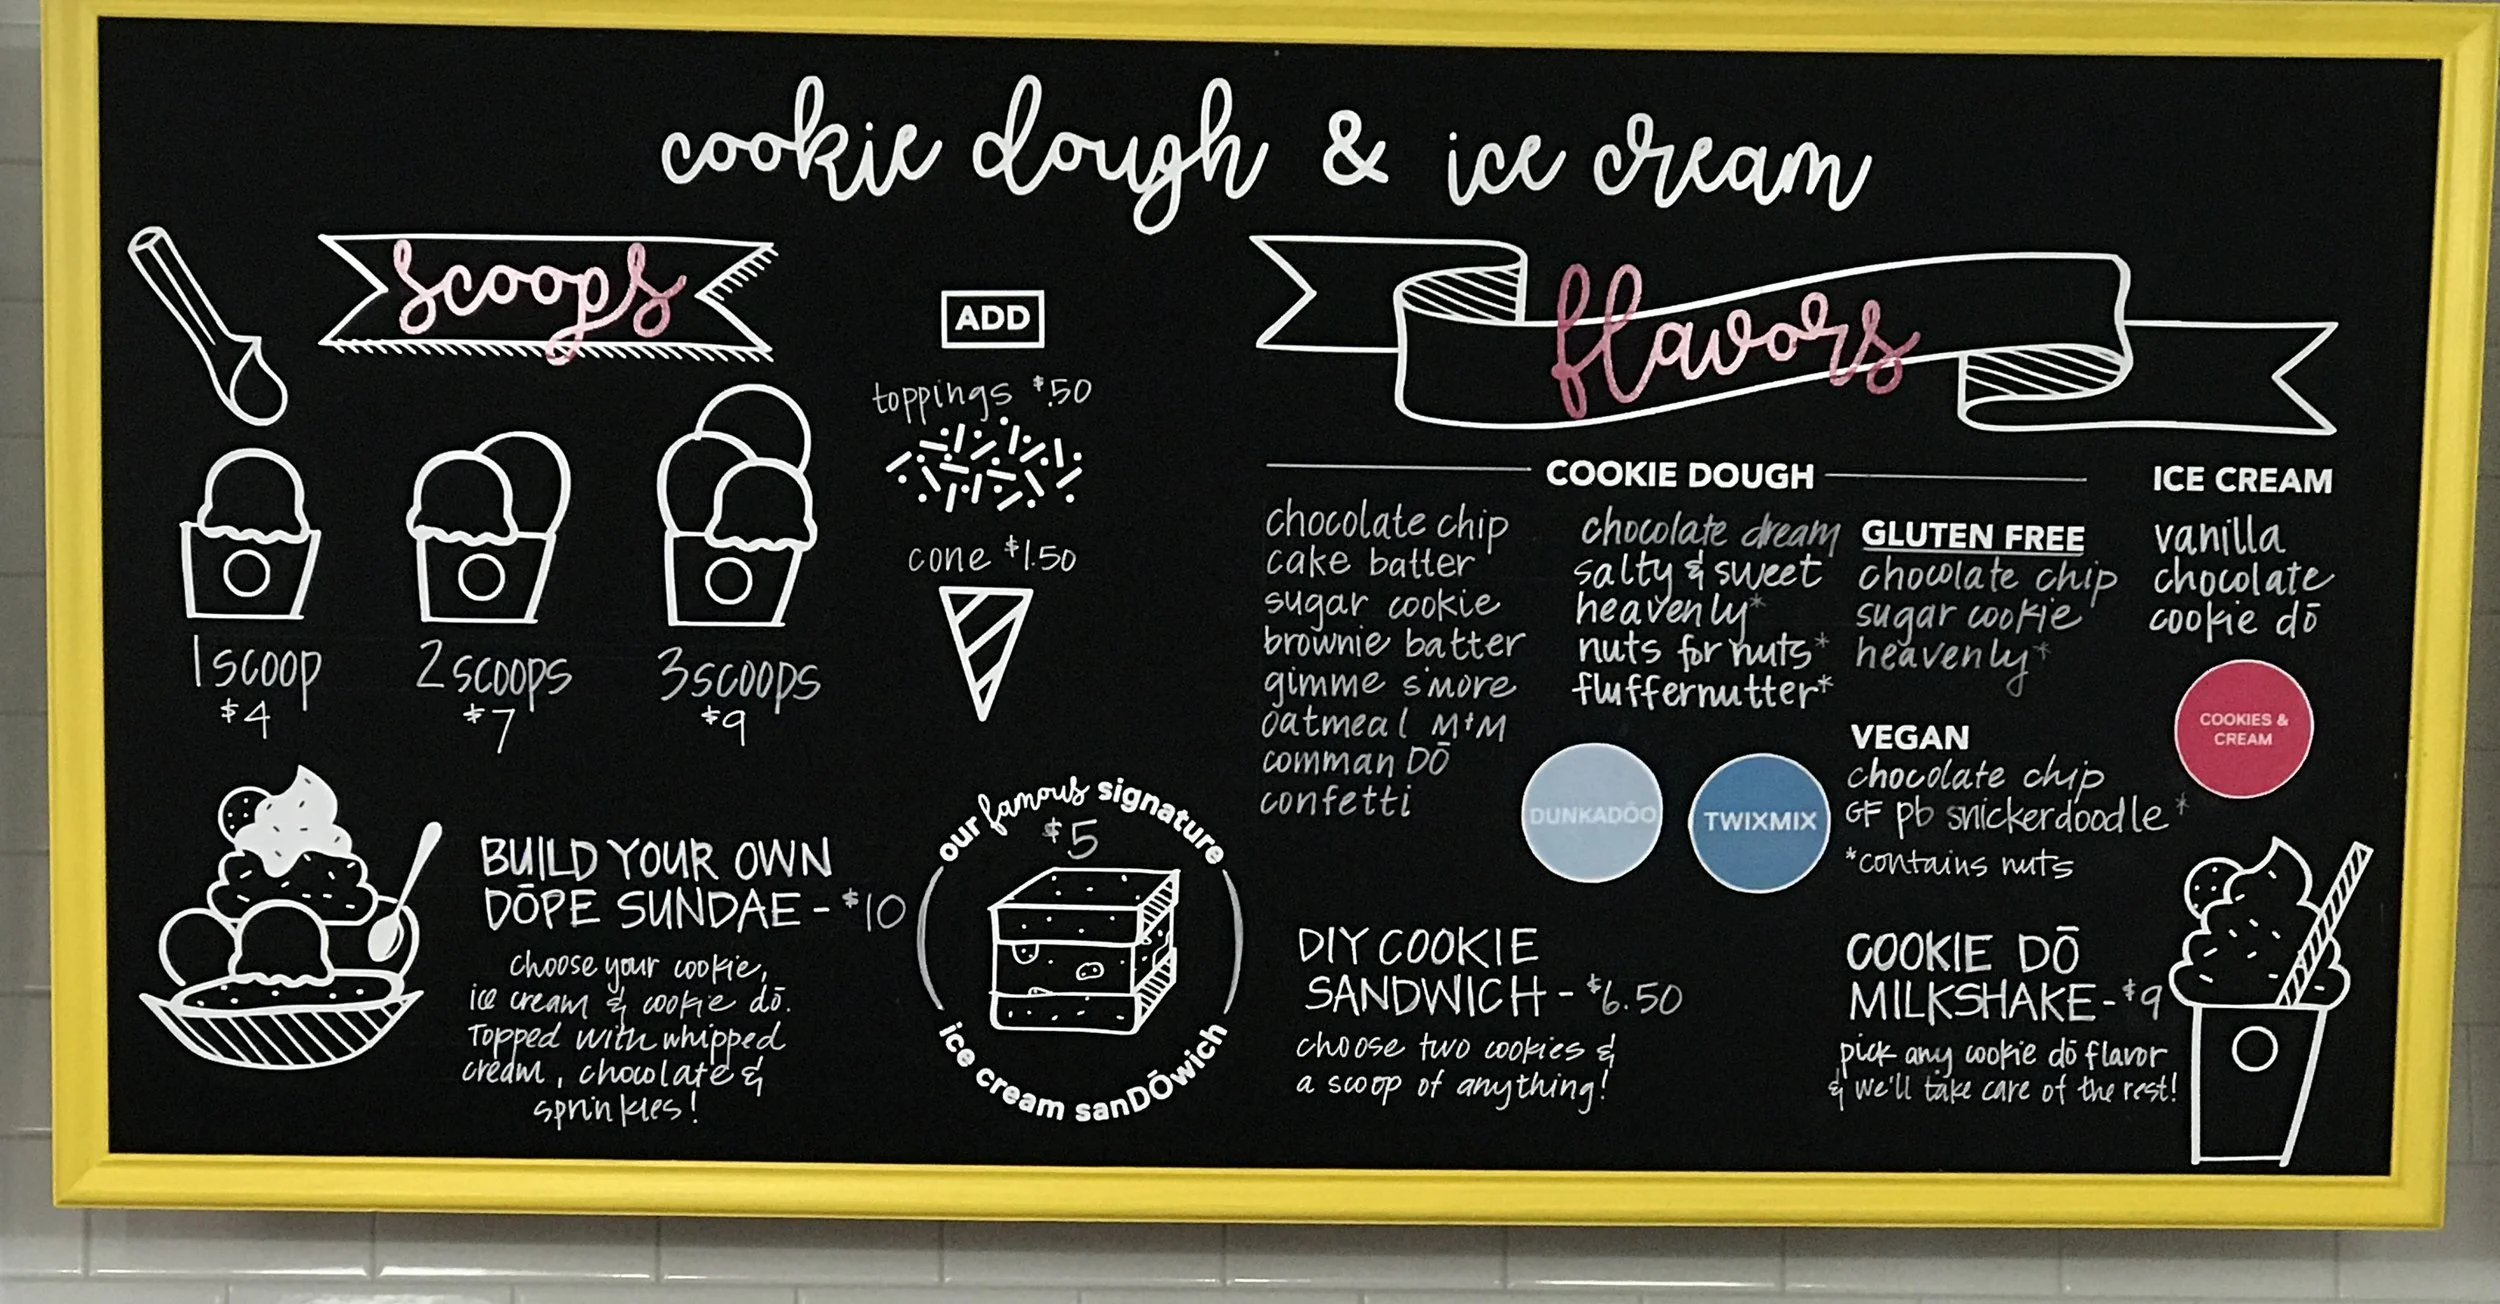 cookie dough & ice cream
scoops
1 scoop
$4
2 scoops
$7
3 scoops
$9
ADD
toppings $.50
cone $1.50
BUILD YOUR OWN
DŌPE SUNDAE - $10
choose your cookie,
ice cream & cookie dō.
Topped with whipped
cream, chocolate &
sprinkles!
our famous signature
$5
ice cream sanDŌwich
flavors
COOKIE DOUGH
chocolate chip
cake batter
sugar cookie
brownie batter
gimme s'more
oatmeal M+M
comman DŌ
confetti
chocolate dream
salty & sweet
heavenly*
nuts for nuts*
fluffernutter*
DUNKADŌO
TWIXMIX
GLUTEN FREE
chocolate chip
sugar cookie
heavenly*
VEGAN
chocolate chip
GF pb snickerdoodle*
*contains nuts
ICE CREAM
vanilla
chocolate
cookie dō
COOKIES &
CREAM
DIY COOKIE
SANDWICH - $6.50
choose two cookies &
a scoop of anything!
COOKIE DŌ
MILKSHAKE - $9
pick any cookie dō flavor
& we'll take care of the rest!